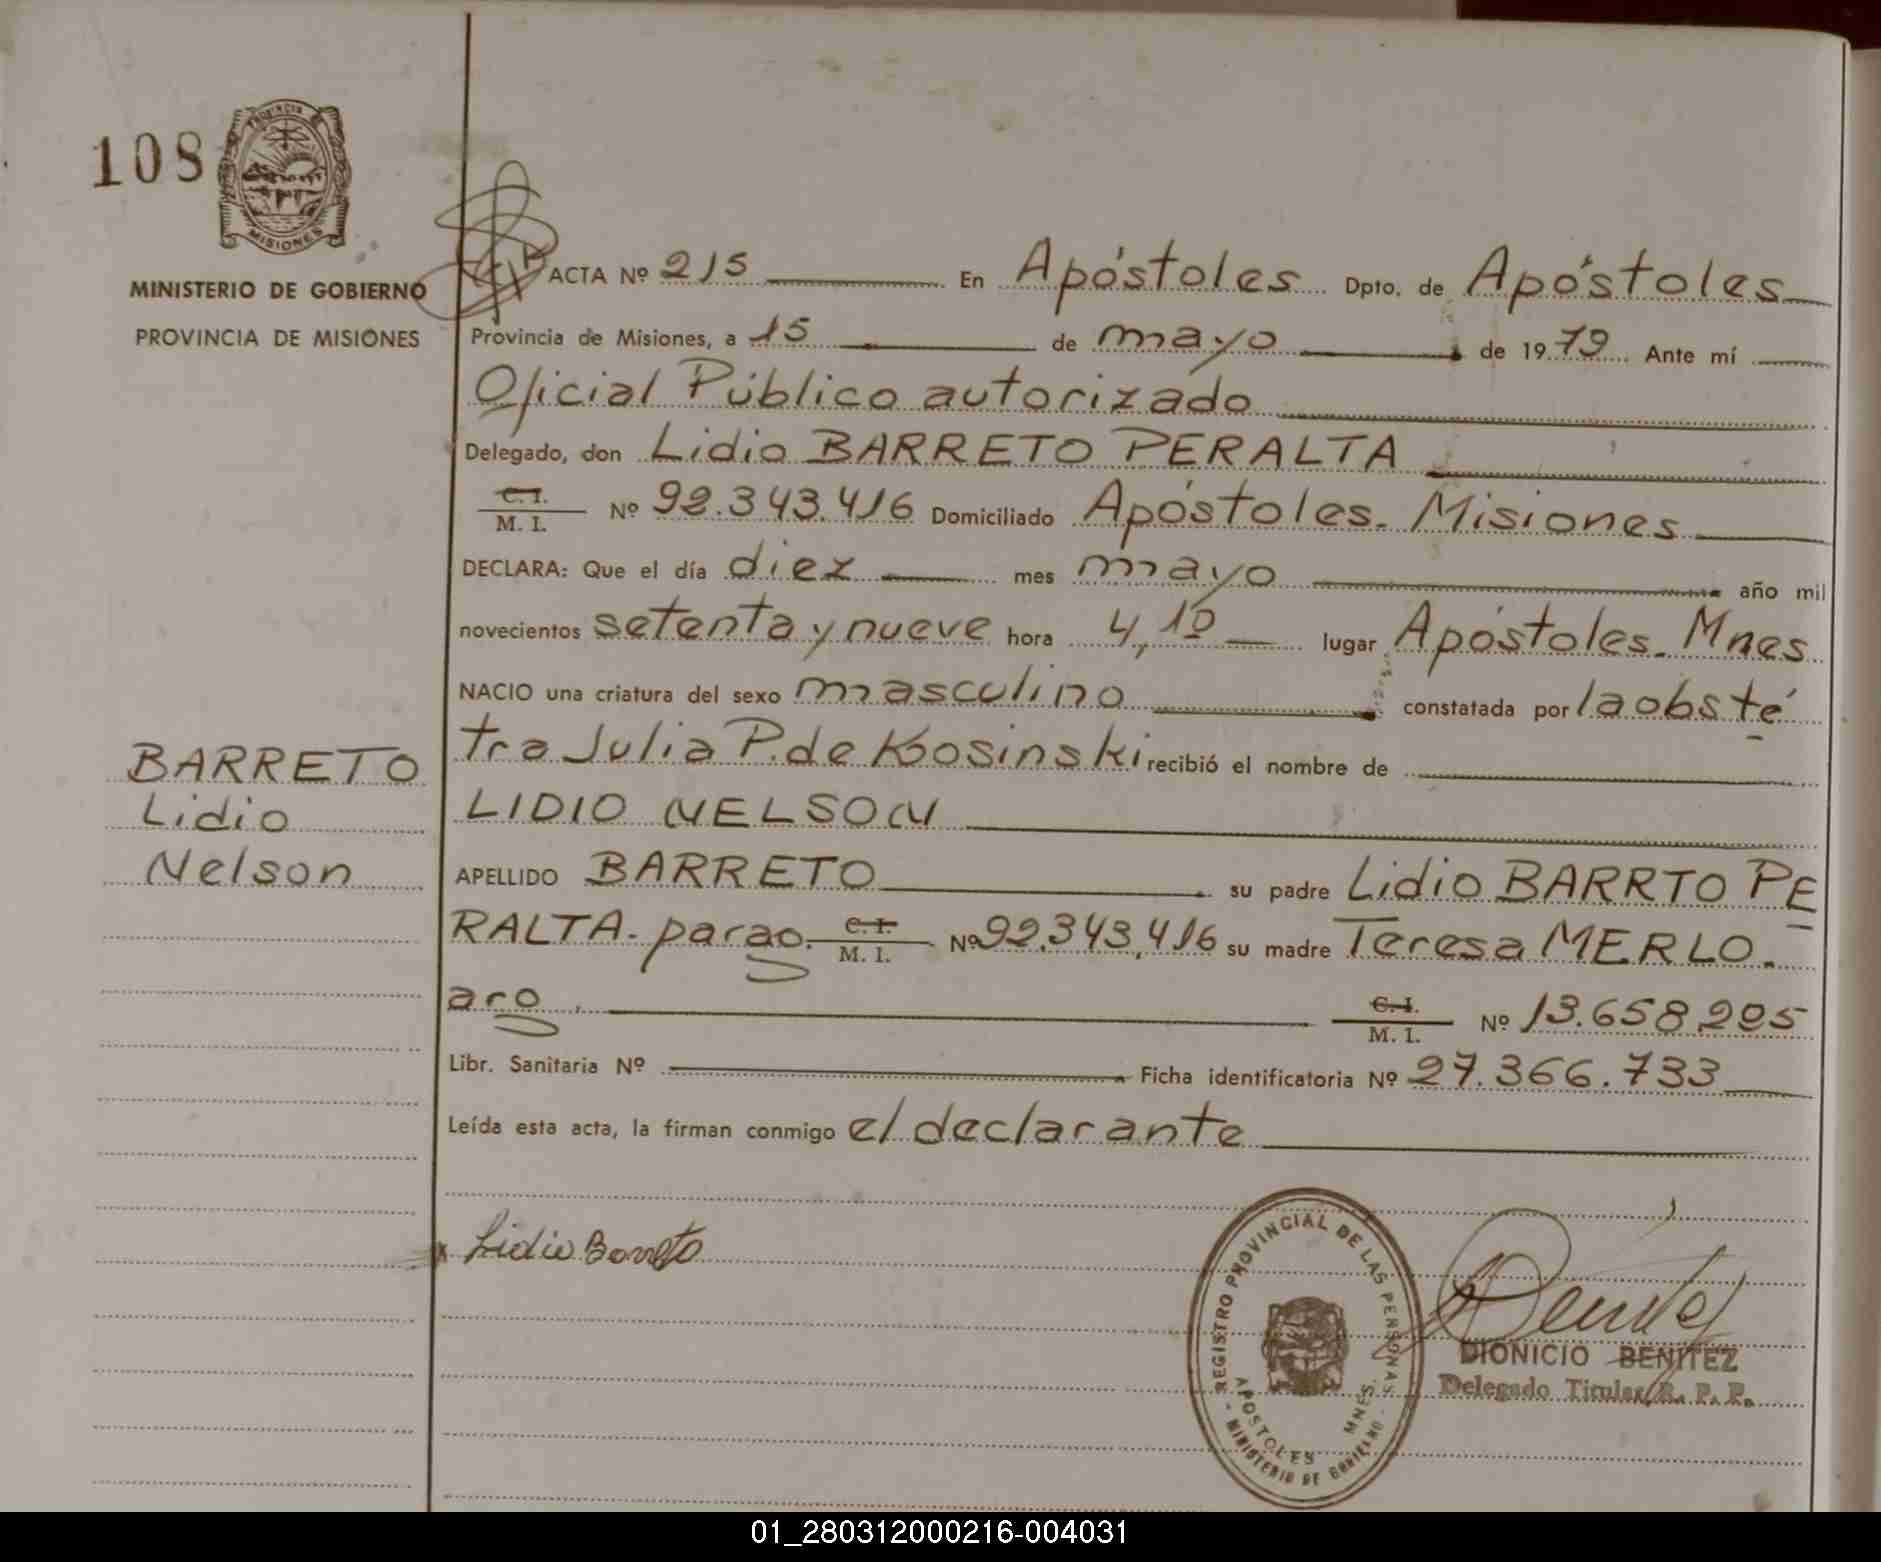 108
PROVINCIA DE
MISIONES
MINISTERIO DE GOBIERNO
PROVINCIA DE MISIONES
ACTA Nº 215 En Apóstoles Dpto. de Apóstoles
Provincia de Misiones, a 15 de mayo de 1979 Ante mí
Oficial Público autorizado
Delegado, don Lidio BARRETO PERALTA
C. I.
M. I. Nº 92.343.416 Domiciliado Apóstoles. Misiones
DECLARA: Que el día diez mes mayo año mil
novecientos setenta y nueve hora 4,10 lugar Apóstoles. Mnes
NACIO una criatura del sexo masculino constatada por la obsté
tra Julia P. de Kosinski recibió el nombre de
LIDIO NELSON
APELLIDO BARRETO su padre Lidio BARRTO PE
RALTA. parao. C. I. M. I. Nº 92.343.416 su madre Teresa MERLO.
aro. C. I. M. I. Nº 13.658.205
Libr. Sanitaria Nº Ficha identificatoria Nº 27.366.733
Leída esta acta, la firman conmigo el declarante
BARRETO
Lidio
Nelson
x Lidio Barreto
REGISTRO PROVINCIAL DE LAS PERSONAS
APOSTOLES MNES.
- MINISTERIO DE GOBIERNO -
DIONICIO BENITEZ
Delegado Titular R. P. P.
01_280312000216-004031